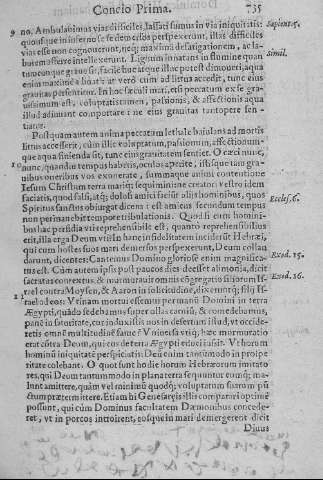 Concio Prima. 735
9 no. Ambulauimus vias difficiles, lassati sumus in via iniquitatis: Sapient. 5.
quousque in inferno se se demersos perspexerunt, illas difficiles
vias esse non cognouerunt, neq; maximã defatigationem, ac la-
borem afferre intellexerunt. Lignum innatans in flumine quan Simil.
tumcunque graue sit, facile huc atque illuc potest dimoueri, aqua
enim maximè adiuuat: at verò cum ad littus accedit, tunc eius
grauitas persentitur. In hoc sæculi mari, etsi peccatum ex se gra-
uissimum est, voluptatis tamen, pasionis, & affectionis aqua
illud adiuuat comportare: ne eius grauitas tantopere sen-
tiatur.
Postquam autem anima peccatum lethale baiulans ad mortis
littus accesserit, cùm illic voluptatum, pasionum, affectionum-
que aqua finienda sit, tunc eius grauitatem sentiet. O cæci mei,
10 nunc, quandiu tempus habetis, oculos aperite, istisque tam gra-
nibus oneribus vos exonerate, summaque animi contentione
Iesum Christum terra mariq; sequimini: ne creatori vestro idem
faciatis, quod falsi, atq; dolosi amici facilè alijs hominibus, quos
Spiritus sanctus obiurgat dicens: est amicus secundum tempus Eccles. 6.
non permanebit tempore tribulationis. Quod si cum homini-
bus hæc perfidia
erit, illa erga Deum vitij? In hanc infidelitatem inciderũt Hebræi,
qui cum hostes suos mari demersos perspexerunt, Deum collau
darunt, dicentes: Cantemus Domino gloriosè enim magnifica- Exod. 15.
tus est. Cùm autem ipsis post paucos dies deesset alimonia, dicit
sacratus contextus, & murmurauit omnis cõgregatio filiorum Is- Exod. 16.
rael contra Moysen, & Aaron in solitudine, dixeruntq; filij Is-
11 rael ad eos: Vtinam mortui essemus per manũ Domini in terra
Ægypti, quãdo sedebamus super ollas carniũ, & comedebamus,
panẽ in saturitate, cur induxistis nos in desertum istud, vt occide-
retis omnẽ multitudinẽ fame?
erat cõtra Deum, qui eos de terra Ægypti eduxisset. Vt horum
hominũ iniquitatẽ perspiciatis: Deũ enim tantũmodo in prospe
ritate colebant. O quot sunt hodie horum Hebræorum imitato
res, qui Deum tantummodo in plana terra sequuntur
lunt amittere, quàm vel minimũ quodq; voluptatum suarum pũ
ctum prætermittere. Etiam hi Genesareis illis comparari optimè
possunt, qui cùm Dominus facultatem Dæmonibus concede-
ret, vt in porcos introirent, eosque in mari demergerent dicit
Diuus